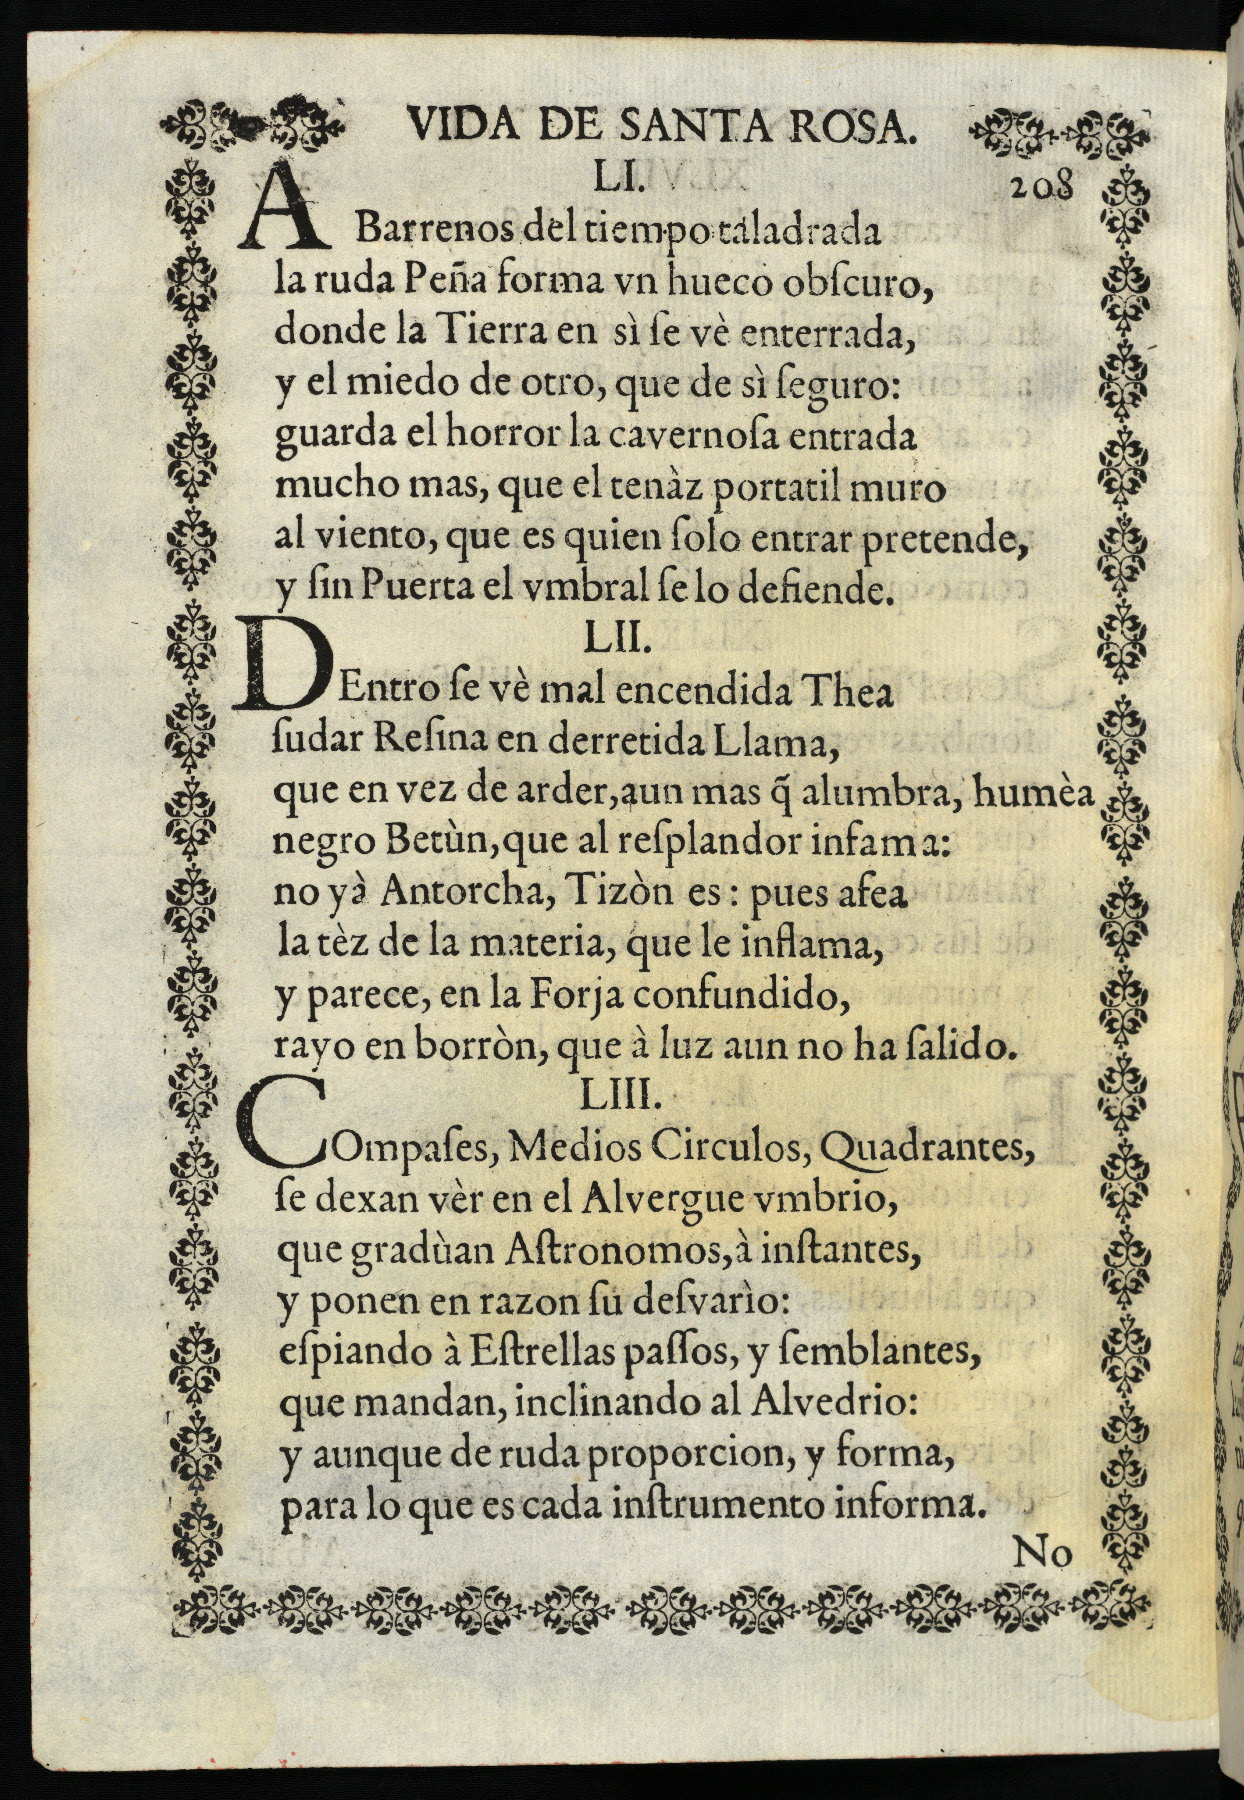 VIDA DE SANTA ROSA.
LI.
208
A Barrenos del tiempo taladrada
la ruda Peña forma vn hueco obſcuro,
donde la Tierra en sì ſe vè enterrada,
y el miedo de otro, que de sì ſeguro:
guarda el horror la cavernoſa entrada
mucho mas, que el tenàz portatil muro
al viento, que es quien ſolo entrar pretende,
y ſin Puerta el vmbral ſe lo defiende.
LII.
DEntro ſe vè mal encendida Thea
ſudar Reſina en derretida Llama,
que en vez de arder, aun mas q̃ alumbra, humèa
negro Betùn, que al reſplandor infama:
no yà Antorcha, Tizòn es: pues afea
la tèz de la materia, que le inflama,
y parece, en la Forja confundido,
rayo en borròn, que à luz aun no ha ſalido.
LIII.
COmpaſes, Medios Circulos, Quadrantes,
ſe dexan vèr en el Alvergue vmbrio,
que gradùan Aſtronomos, à inſtantes,
y ponen en razon ſu deſvarìo:
eſpiando à Eſtrellas paſſos, y ſemblantes,
que mandan, inclinando al Alvedrio:
y aunque de ruda proporcion, y forma,
para lo que es cada inſtrumento informa.
No